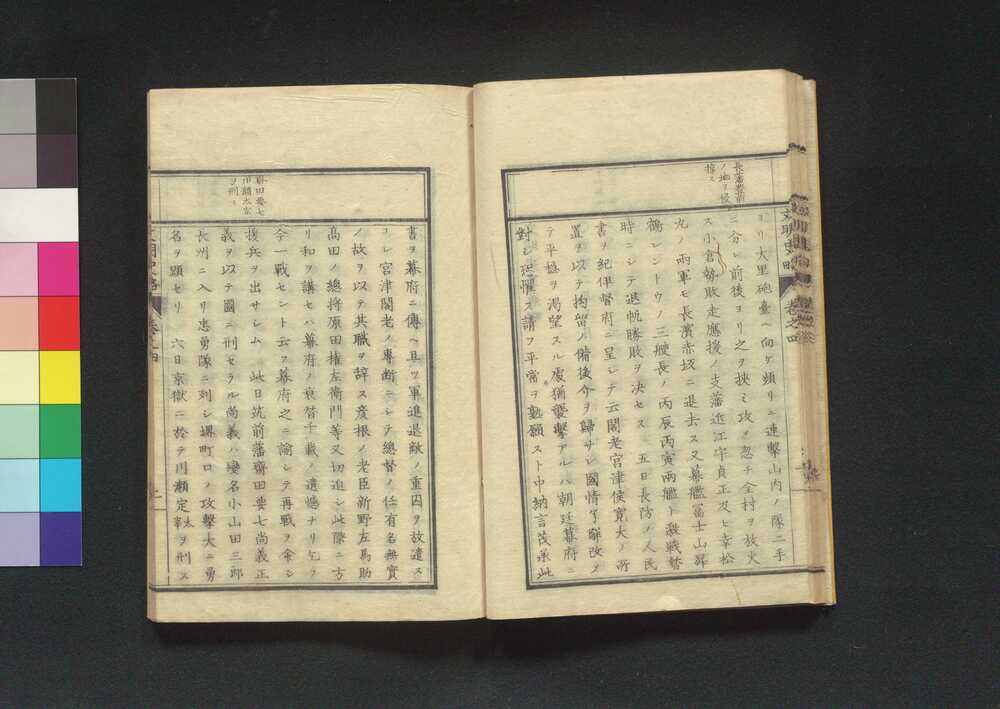 長藩豊前
ノ地ヲ侵
掠ス
ヨリ大里砲臺ヘ向ケ頻リニ連撃山内ノ隊二手
ニ分レ前後ヨリ之ヲ挾ミ攻ヲ忽チ全村ヲ放火
ス小倉勢敗走應援ノ支藩近江守貞正及ヒ幸松
丸ノ両軍モ長濱赤坂ニ退去ス又幕艦冨士山昇
鶴レントウノ三艘長ノ丙辰丙寅両艦ト激戦暫
時ニシテ退帆勝敗ヲ决セス 五日長防ノ人民
書ヲ紀伊督府ニ呈シテ云閣老宮津侯寛大ノ所
置ヲ以テ拘留ノ備後介ヲ歸サレ國情了解改テ
テ平穏ヲ渇望スル處猶襲撃アルハ朝廷幕府ニ
對シ恐懼ス請フ平常ヲ懇願スト中納言茂承此
文明史略 巻之四
齋田要七
川瀬太宰
ヲ刑ス
書ヲ幕府ニ傳ヘ且ツ軍進退敵ノ重囚ヲ放遣ス
コレ宮津閣老ノ専断ニシテ總督ノ任有名無實
ノ故ヲ以テ其職ヲ辞ス彦根ノ老臣新野左馬助
髙田ノ総将原田権左衛門等又切迫シ此際ニ方
リ和ヲ講セハ幕府ノ衰替千載ノ遺憾ナリ乞フ
今一戦セント云フ幕府之ニ諭シテ再戦ヲ命シ
援兵ヲ出サレム 此日筑前藩齋田要七尚義正
義ヲ以テ國ニ刑セラル尚義ハ變名小山田三郎
長州ニ入リ忠勇隊ニ列シ堺町口ノ攻撃大ニ勇
名ヲ顕セリ 六日京獄ニ於テ川瀬定太宰ヲ刑ス
文明史略 巻之四